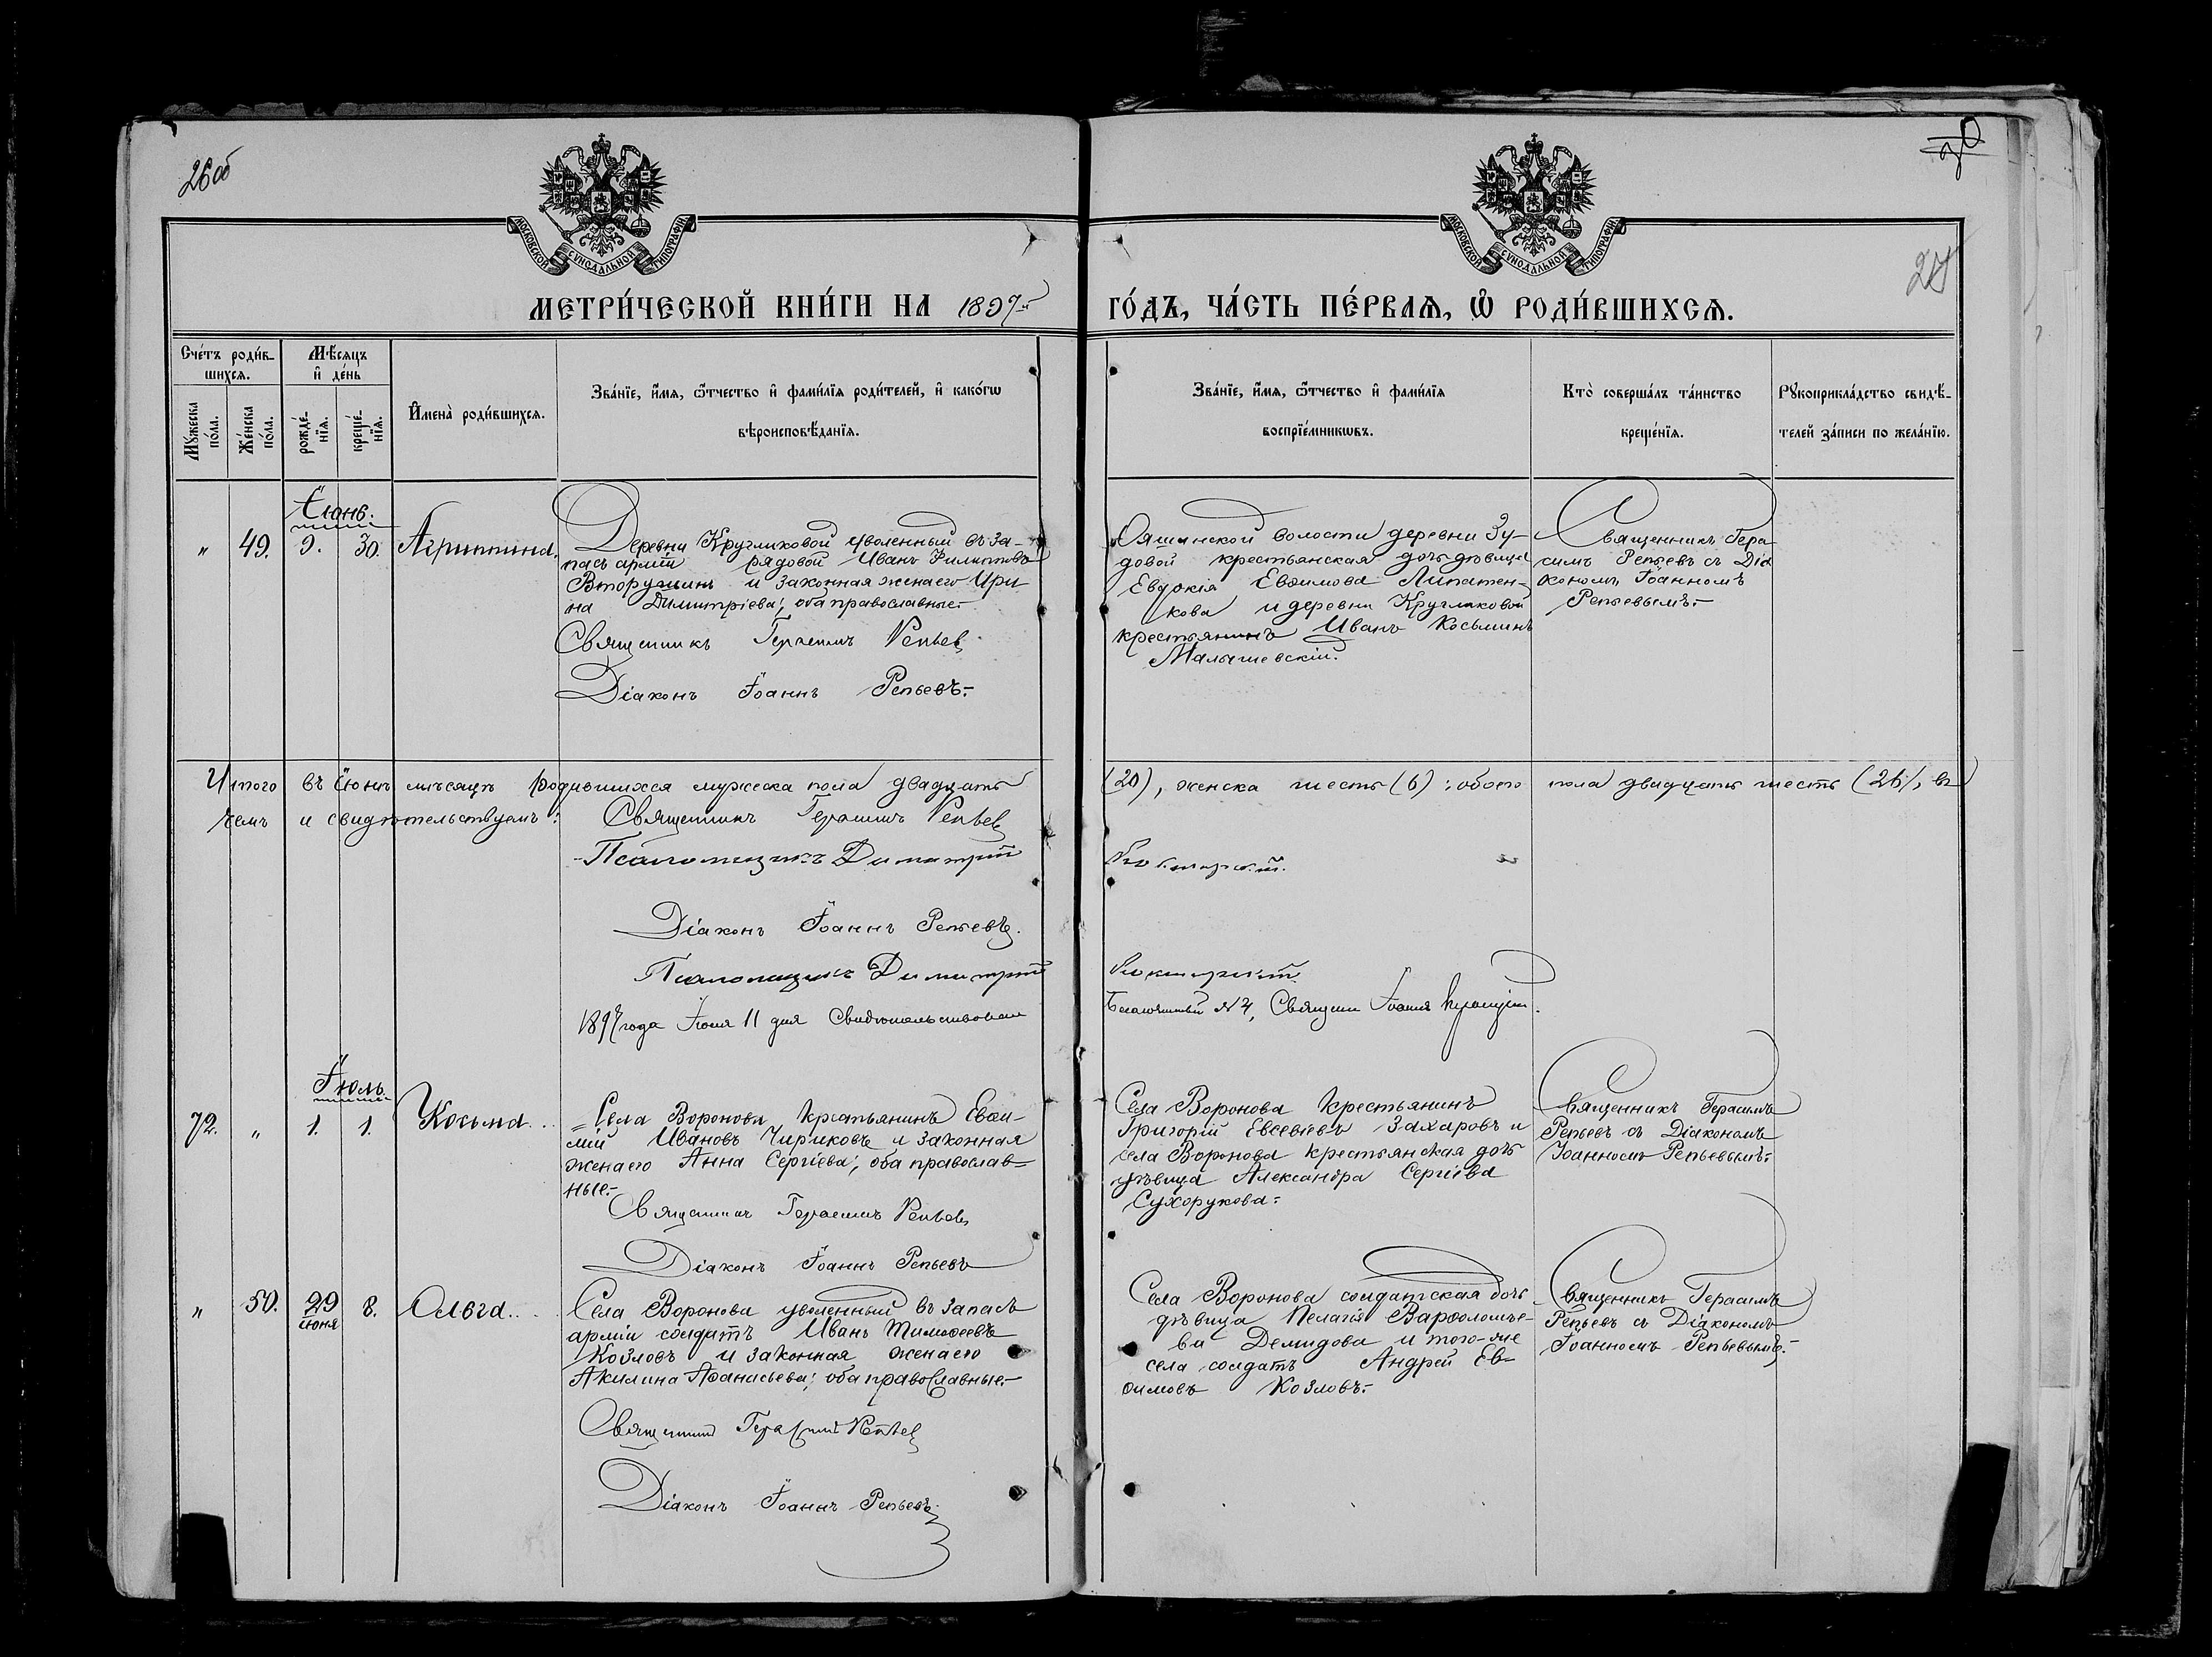 26об
30
27
МОСКОВСКОЙ СѴНОДАЛЬНОЙ ТИПОГРАФІИ
МОСКОВСКОЙ СѴНОДАЛЬНОЙ ТИПОГРАФІИ
МЕТРИ́ЧЕСКОЙ КНИ́ГИ НА 1897-й
ГО́ДЪ, ЧА́СТЬ ПЕ́РВАѦ, Ѡ҆ РОДИ́ВШИХСѦ.
Сче́тъ роди́в-
шихсѧ.
Мѣ́сѧцъ
и҆ де́нь
Му́жеска по́ла.
Же́нска по́ла.
рожде́-нїѧ.
креще́-нїѧ.
И҆мена̀ роди́вшихсѧ.
Зва́нїе, и҆́мѧ, ѻ҆́тчество и҆ фами́лїѧ роди́телей, и҆ како́гѡ
вѣроисповѣ́данїѧ.
Зва́нїе, и҆́мѧ, ѻ҆́тчество и҆ фами́лїѧ
воспрїе́мникѡвъ.
Кто̀ соверша́лъ та́инство
креще́нїѧ.
Рꙋкоприкла́дство свидѣ́-
телей за́писи по жела́нїю.
Іюнь.
" 49. 9. 30. Агриппина.
Деревни Кругликовой уволенный въ за-
пасъ арміи рядовой Иванъ Филипповъ
Вторушинъ и законная жена его Ири-
на Димитріева; оба православные.-
Священникъ Герасимъ Репьев
Діаконъ Іоаннъ Репьевъ.-
Ояшинской волости деревни Зу-
довой крестьянская дочь дѣвица
Евдокія Евѳимова Липатен-
кова и деревни Кругликовой
крестьянинъ Иванъ Косьминъ
Малышевскій.
Священникъ Гера-
симъ Репьевъ съ Діа
кономъ Іоанномъ
Репьевымъ.-
Итого въ Іюнѣ мѣсяцѣ родившихся мужеска пола двадцать
(20), женска шесть (6); обоего пола двадцать шесть (26), въ
чемъ и свидѣтельствуемъ: Священникъ Герасимъ Репьев
Псаломщикъ Димитрій
Діаконъ Іоаннъ Репьевъ.
Псаломщикъ Димитрій
1897 года Іюля 11 дня Свидѣтельствовалъ
Благочинный № 4, Священ Іоаннъ
Іюль.
72. " 1. 1. Косьма..
Села Воронова крестьянинъ Евѳи-
мій Ивановъ Чириковъ и законная
жена его Анна Сергіева; оба православ-
ные.-
Священникъ Герасимъ Репьев
Діаконъ Іоаннъ Репьевъ
Села Воронова крестьянинъ
Григорій Евсевіевъ Захаровъ и
села Воронова крестьянская дочь
дѣвица Александра Сергіева
Сухорукова.-
Священникъ Герасимъ
Репьевъ съ Діакономъ
Іоанномъ Репьевымъ.-
" 50. 29 іюня 8. Ольга...
Села Воронова уволенный въ запасъ
арміи солдатъ Иванъ Тимоѳеевъ
Козловъ и законная жена его
Акилина Аѳанасьева; оба православные.-
Священникъ Герасимъ Репьев
Діаконъ Іоаннъ Репьевъ.
Села Воронова солдатская дочь
дѣвица Пелагія Варѳоломѣе-
ва Демидова и того-же
села солдатъ Андрей Ев-
ѳимовъ Козловъ.-
Священникъ Герасимъ
Репьевъ съ Діакономъ
Іоанномъ Репьевымъ.-